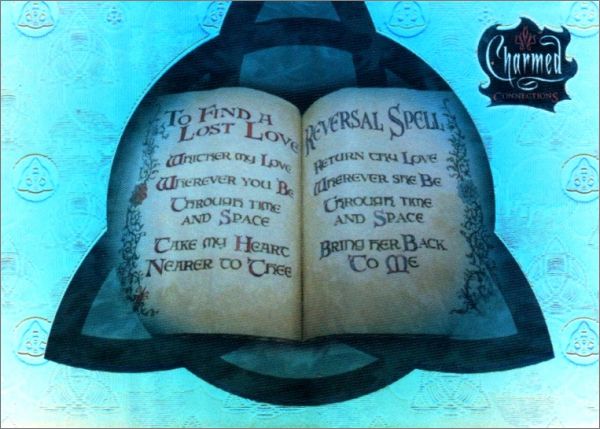 Charmed
CONNECTIONS
TO FIND A
LOST LOVE
WHITHER MY LOVE
WHEREVER YOU BE
THROUGH TIME
AND SPACE
TAKE MY HEART
NEARER TO THEE
REVERSAL SPELL
RETURN THY LOVE
WHEREVER SHE BE
THROUGH TIME
AND SPACE
BRING HER BACK
TO ME